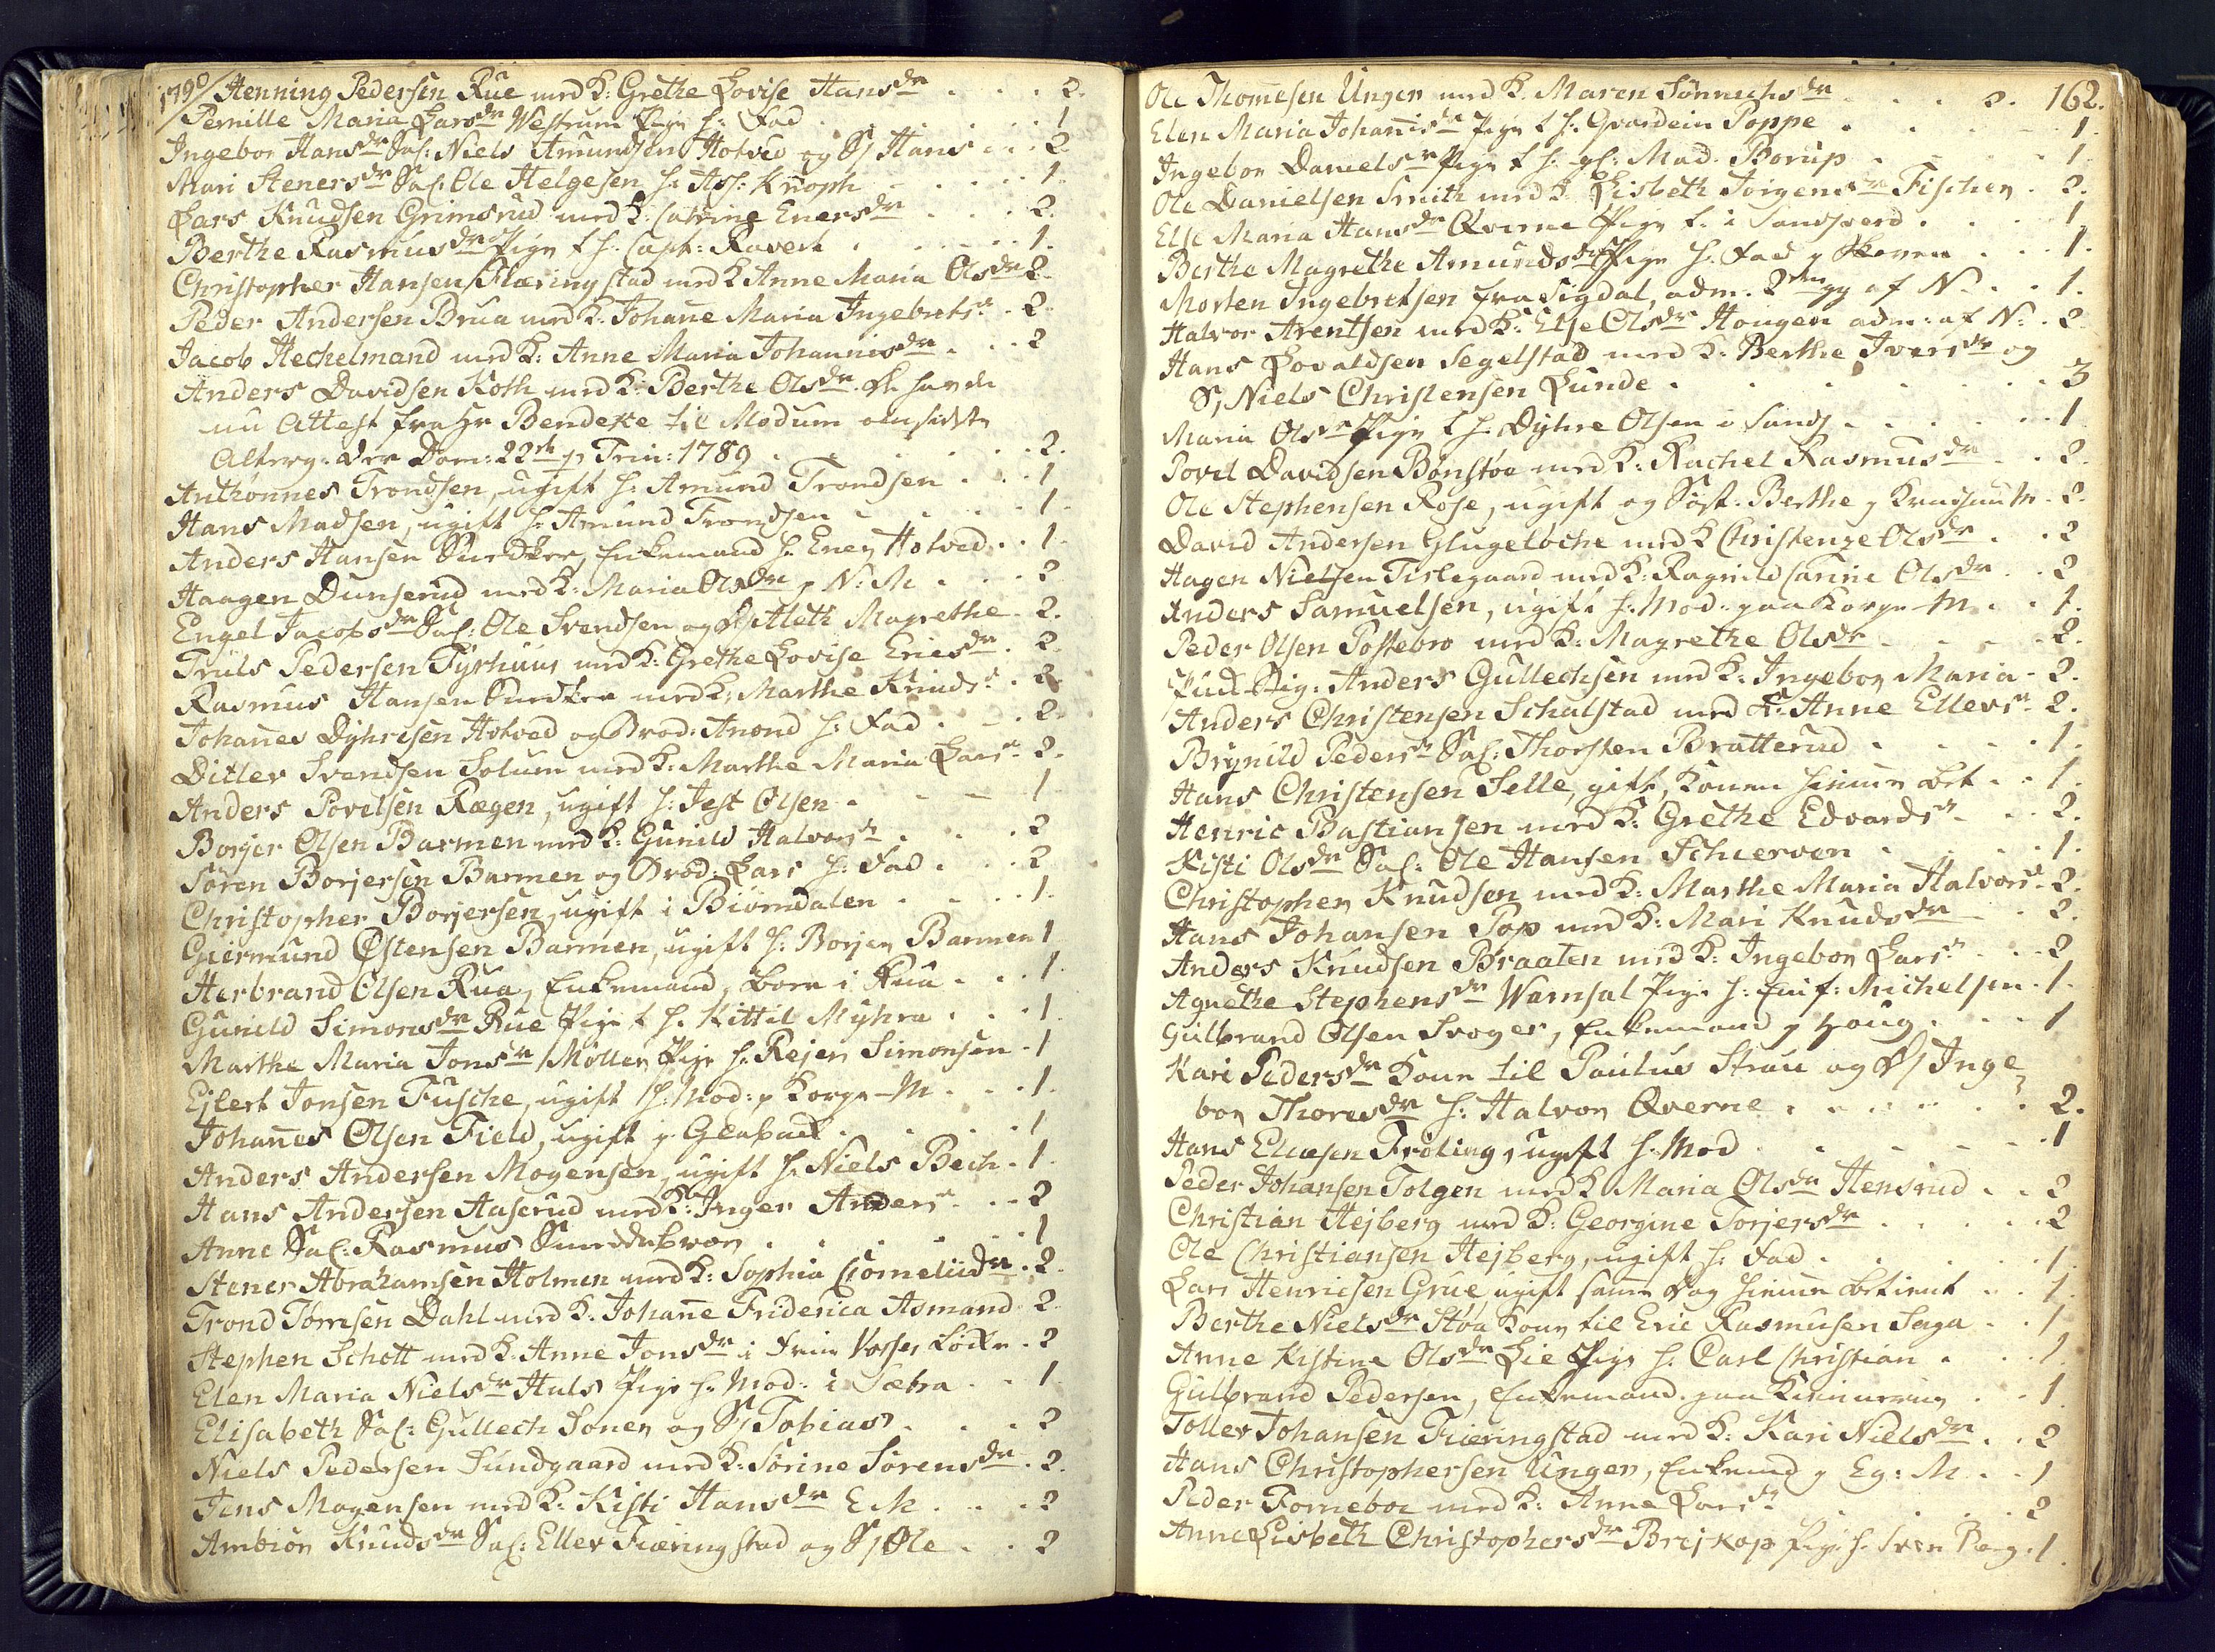 1790/ Henning Pedersen Rue med K: Grethe Lovise Hansdr . . . 2.
Pernille Maria Larsdr Westrum Pige h: Fad . . . 1
Ingebor Hansdr Sal: Niels Amundsen Hotved og S/ Hans . . . 2
Mari Stenersdr Sal: Ole Helgesen h: Ass: Knoph . . . 1.
Lars Knudsen Grimsrud med K: Catrine Enersdr . . . 2.
Berthe Rasmusdr Pige t h: Capt: Ravert . . . 1.
Christopher Hansen Flæringstad med K Anne Maria Olsdr 2
Peder Andersen Brua med K: Johane Maria Ingebretsr . 2.
Jacob Hechelmand med K: Anne Maria Johannisdr . . . 2
Anders Davidsen Koth med K: Berthe Olsdr. de havde
nu Attest fra Hr Bendeke til Modum
Alterg: der Dom: 22de p Trin: 1789 . . . 2.
Anthonnes Trondsen, ugift h: Amund Trondsen . . 1
Hans Madsen, ugift h: Amund Trondsen . . . 1
Anders Hansen Enkemand h: Ener Hotved . . 1
Haagen Dunserud med K: Maria Olsdr p N: M . . . 2
Engel Jacobsdr Sal: Ole Svendsen og D/ Aleth Magrethe . 2.
Truls Pedersen Fyrhuus med K: Grethe Lovise Ericsdr . 2.
Rasmus Hansen med K: Marthe Knudsr . 2
Johanes Dyhresen Hotved og Brod: Anond h: Fad . . 2.
Ditlev Svendsen Solum med K: Marthe Maria Larsr . 2.
Anders Povelsen Rægen, ugift h: Jest Olsen . . . 1
Borjer Olsen Barmen med K: Gunild Halvorsr . . . 2
Søren Borjersen Barmen og Brod: Lars h: Fad . . . 2
Christopher Borjersen, ugift i Biørndalen . . . 1.
Giermund Østensen Barmen, ugift h: Borjer Barmen 1
Herbrand Olsen Rua, Enkemand, boer i Rua . . . 1.
Gunild Simonsdr Rue Pige t h: Kittil Myhra . . . 1.
Marthe Maria Jonsr Møller Pige h: Rejer Simonsen . 1
Ejlert Jonsen Fusche, ugift h: Mod: p Korge-M . . . 1.
Johanes Olsen Field, ugift p Glabak . . . 1
Anders Andersen Mogensen, ugift h: Niels Bech . 1.
Hans Andersen Haserud med K: Inger Andersr . . 2
Anne Sal: Rasmus . . . 1
Stener Abrahamsen Holmen med K: Sophia Corneliidr . 2.
Trond Tomsen Dahl med K: Johane Friderica Asmand 2
Stephen Schott med K: Anne Jonsdr i . 2
Elen Maria Nielsdr Huls Pige h: Mod: i Sæbra . . 1
Elisabeth Sal: Gullech Joner og S/ Tobias . . . 2
Niels Pedersen Sundgaard med K: Sørine Sørensdr . 2.
Jens Mogensen med K: Kisti Hansdr Eek . . . 2
Ambiør Knudsdr Sal: Eller Fieringstad og S/ Ole . . 2
162.
Ole Thomesen Unger med K. Maren Sønnichsdr . . . 2.
Elen Maria Johanisdr Pige t h: Gvardein Poppe . . . 1.
Ingebor Danielsr Pige t h: gl: Mad. Borup . . . 1.
Ole Danielsen Smith med K Lisbeth Joigensr Fischer . 2.
Else Maria Hansdr Qverne Pige t. i Sandsverd . . . 1
Berthe Magrethe Amundsdr Pige h: Fad p . . 1.
Morten Ingebretsen fra Sigdal, adm. 2den gg af N: . . 1.
Halvor Arentsen med K: Else Olsdr Hougen adm: af N: . 2
Hans Lovaldsen Segelstad med K: Berthe Iversdr og
S, Niels Christensen Lunde . . . 3
Maria Olsdr Pige t h: Dyhre Olsen i Sands . . . 1
Povel Davidsen Bonstøa med K: Rachel Rasmusdr . . 2.
Ole Stephensen Rose, ugift og Søst: Berthe p . 2.
David Andersen Glugeløche med K Christenze Olsdr . . 2
Hagen Nielsen Tislegaard med K: Ragnild Carine Olsdr . . 2
Anders Samuelsen, ugift h: Mod: paa Korge-M . . 1.
Peder Olsen Postebro med K: Magrethe Olsdr . . . 2.
Anders Gullechsen med K: Ingebor Maria . 2.
Anders Christensen Schalstad med K: Anne Ellersr . 2.
Brynild Pedersr Sal: Thorsten Bratterud . . . 1.
Hans Christensen Selle, gift, Konen hiemme bet . . 1.
Henric Bastiansen med K: Grethe Edvardsr . . . 2.
Kisti Olsdr Sal: Ole Hansen Schierven . . . 1.
Christopher Knudsen med K: Marthe Maria Halvorsr . 2.
Hans Johansen Pop med K: Mari Knudsdr . . 2.
Anders Knudsen Braaten med K: Ingebor Larsr . . . 2
Agnethe Stephensdr Wamsal Pige h: Michelsen . 1.
Gulbrand Olsen Svoger, Enkemand p Houg . . . 1
Kari Pedersdr Kone til Paulus Strau og D/ Inge
bor Thoresdr h: Halvor Qverne . . . 2.
Hans Eliasen Frøling, ugift h: Mod . . . 1
Peder Johansen Tolgen med K Maria Olsdr Hensrud . . 2
Christian Hejberg med K: Georgine Torjersdr . . . 2
Ole Christiansen Hejberg, ugift h: Fad . . . 1.
Lars Henricsen Grue, ugift samme Dag hiemme betient . . 1.
Berthe Nielsdr Støa Kone til Eric Rasmusen Saga . . 1
Anne Kistine Olsdr Lie Pige h: Carl Christian . . . 1.
Gulbrand Pedersen, Enkemand . . 1
Toller Johansen Fieringstad med K: Kari Nielsdr . . 2
Hans Christophersen Unger, Enkemd p Eg: M . . 1
Peder Fornebor med K: Anne Larsr . . . 2
Anne Lisbeth Christophersdr Brejkop Pige h: Iver . 1.